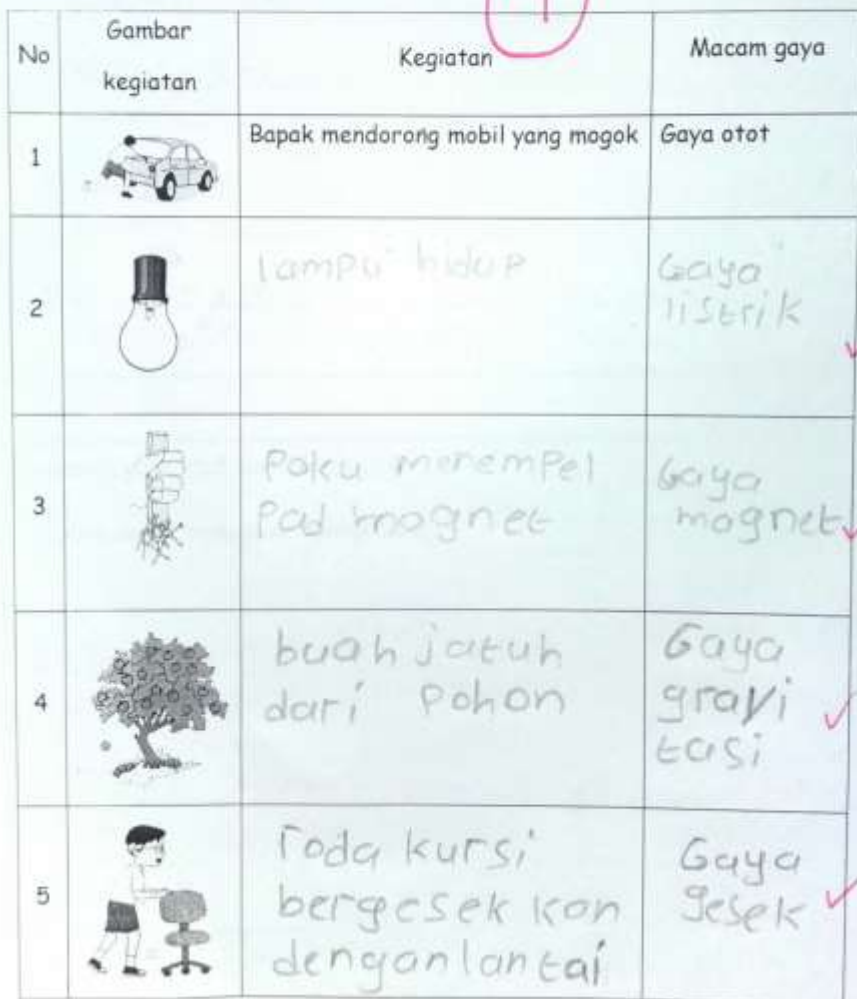 No
Gambar
kegiatan
Kegiatan
Macam gaya
1
Bapak mendorong mobil yang mogok
Gaya otot
2
lampu hidup
Gaya
listrik
3
Paku menempel
Pad magnet
Gaya
magnet
4
buah jatuh
dari Pohon
Gaya
gravi
tasi
5
roda kursi
bergesek kan
dengan lantai
Gaya
gesek